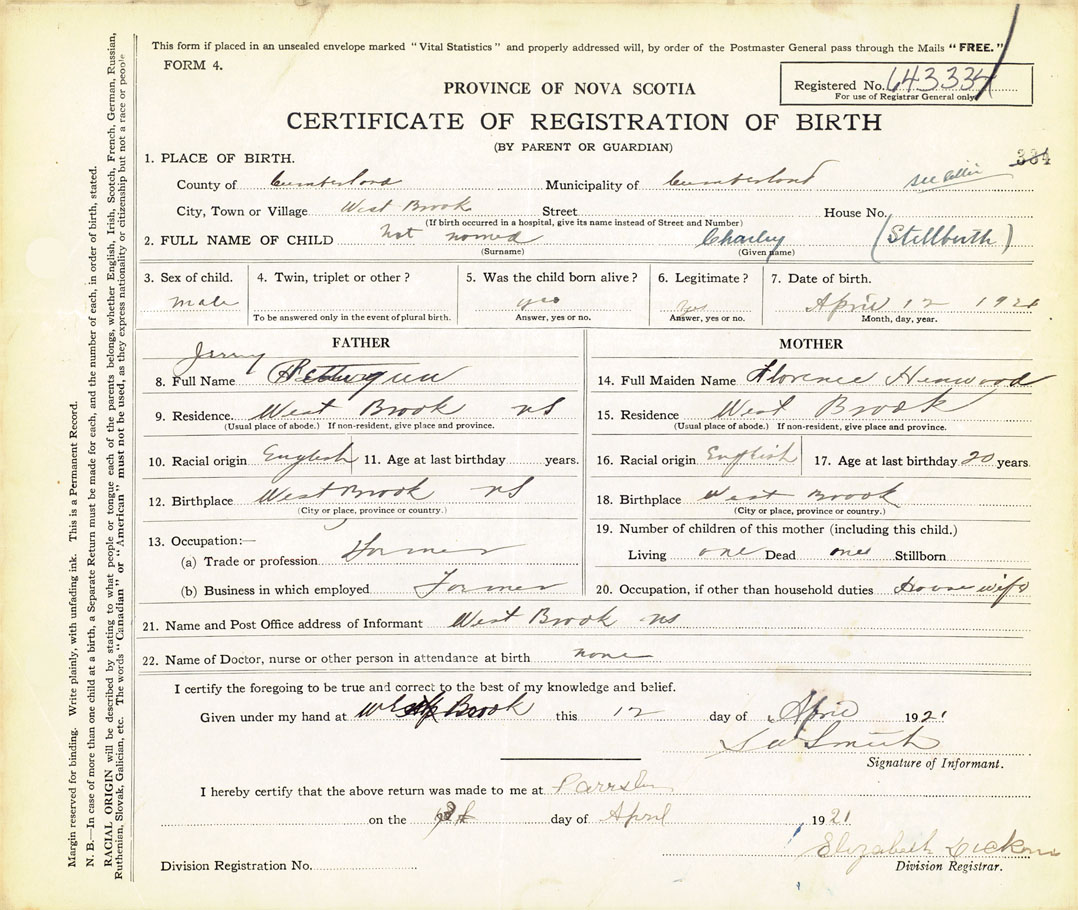 This form if placed in an unsealed envelope marked "Vital Statistics" and properly addressed will, by order of the Postmaster General pass through the Mails "FREE."
FORM 4.
Registered No. 643334
For use of Registrar General only
PROVINCE OF NOVA SCOTIA
CERTIFICATE OF REGISTRATION OF BIRTH
(BY PARENT OR GUARDIAN)
384
1. PLACE OF BIRTH.
County of Cumberland Municipality of Cumberland see
City, Town or Village West Brook Street House No.
(If birth occurred in a hospital, give its name instead of Street and Number)
2. FULL NAME OF CHILD not named Charley (Stillbirth)
(Surname) (Given name)
3. Sex of child. 4. Twin, triplet or other? 5. Was the child born alive? 6. Legitimate? 7. Date of birth.
male yes yes April 12 1921
To be answered only in the event of plural birth. Answer, yes or no. Answer, yes or no. Month, day, year.
FATHER MOTHER
Jerry
8. Full Name 14. Full Maiden Name Florence Henwood
9. Residence. West Brook ns 15. Residence West Brook
(Usual place of abode.) If non-resident, give place and province. (Usual place of abode.) If non-resident, give place and province.
10. Racial origin English 11. Age at last birthday years. 16. Racial origin English 17. Age at last birthday 20 years
12. Birthplace West Brook ns 18. Birthplace West Brook
(City or place, province or country.) (City or place, province or country.)
13. Occupation:— 19. Number of children of this mother (including this child.)
(a) Trade or profession Farmer Living one Dead one Stillborn
(b) Business in which employed Farmer 20. Occupation, if other than household duties House wife
21. Name and Post Office address of Informant West Brook ns
22. Name of Doctor, nurse or other person in attendance at birth none
I certify the foregoing to be true and correct to the best of my knowledge and belief.
Given under my hand at West Brook this 12 day of April 1921
Smith
Signature of Informant.
I hereby certify that the above return was made to me at Parrsboro
on the day of April 1921
Elizabeth Dickens
Division Registration No. Division Registrar.
Margin reserved for binding. Write plainly, with unfading ink. This is a Permanent Record.
N. B.—In case of more than one child at a birth, a Separate Return must be made for each, and the number of each, in order of birth, stated.
RACIAL ORIGIN will be described by stating to what people or tongue each of the parents belongs, whether English, Irish, Scotch, French, German, Russian,
Ruthenian, Slovak, Galician, etc. The words "Canadian" or "American" must not be used, as they express nationality or citizenship but not a race or people